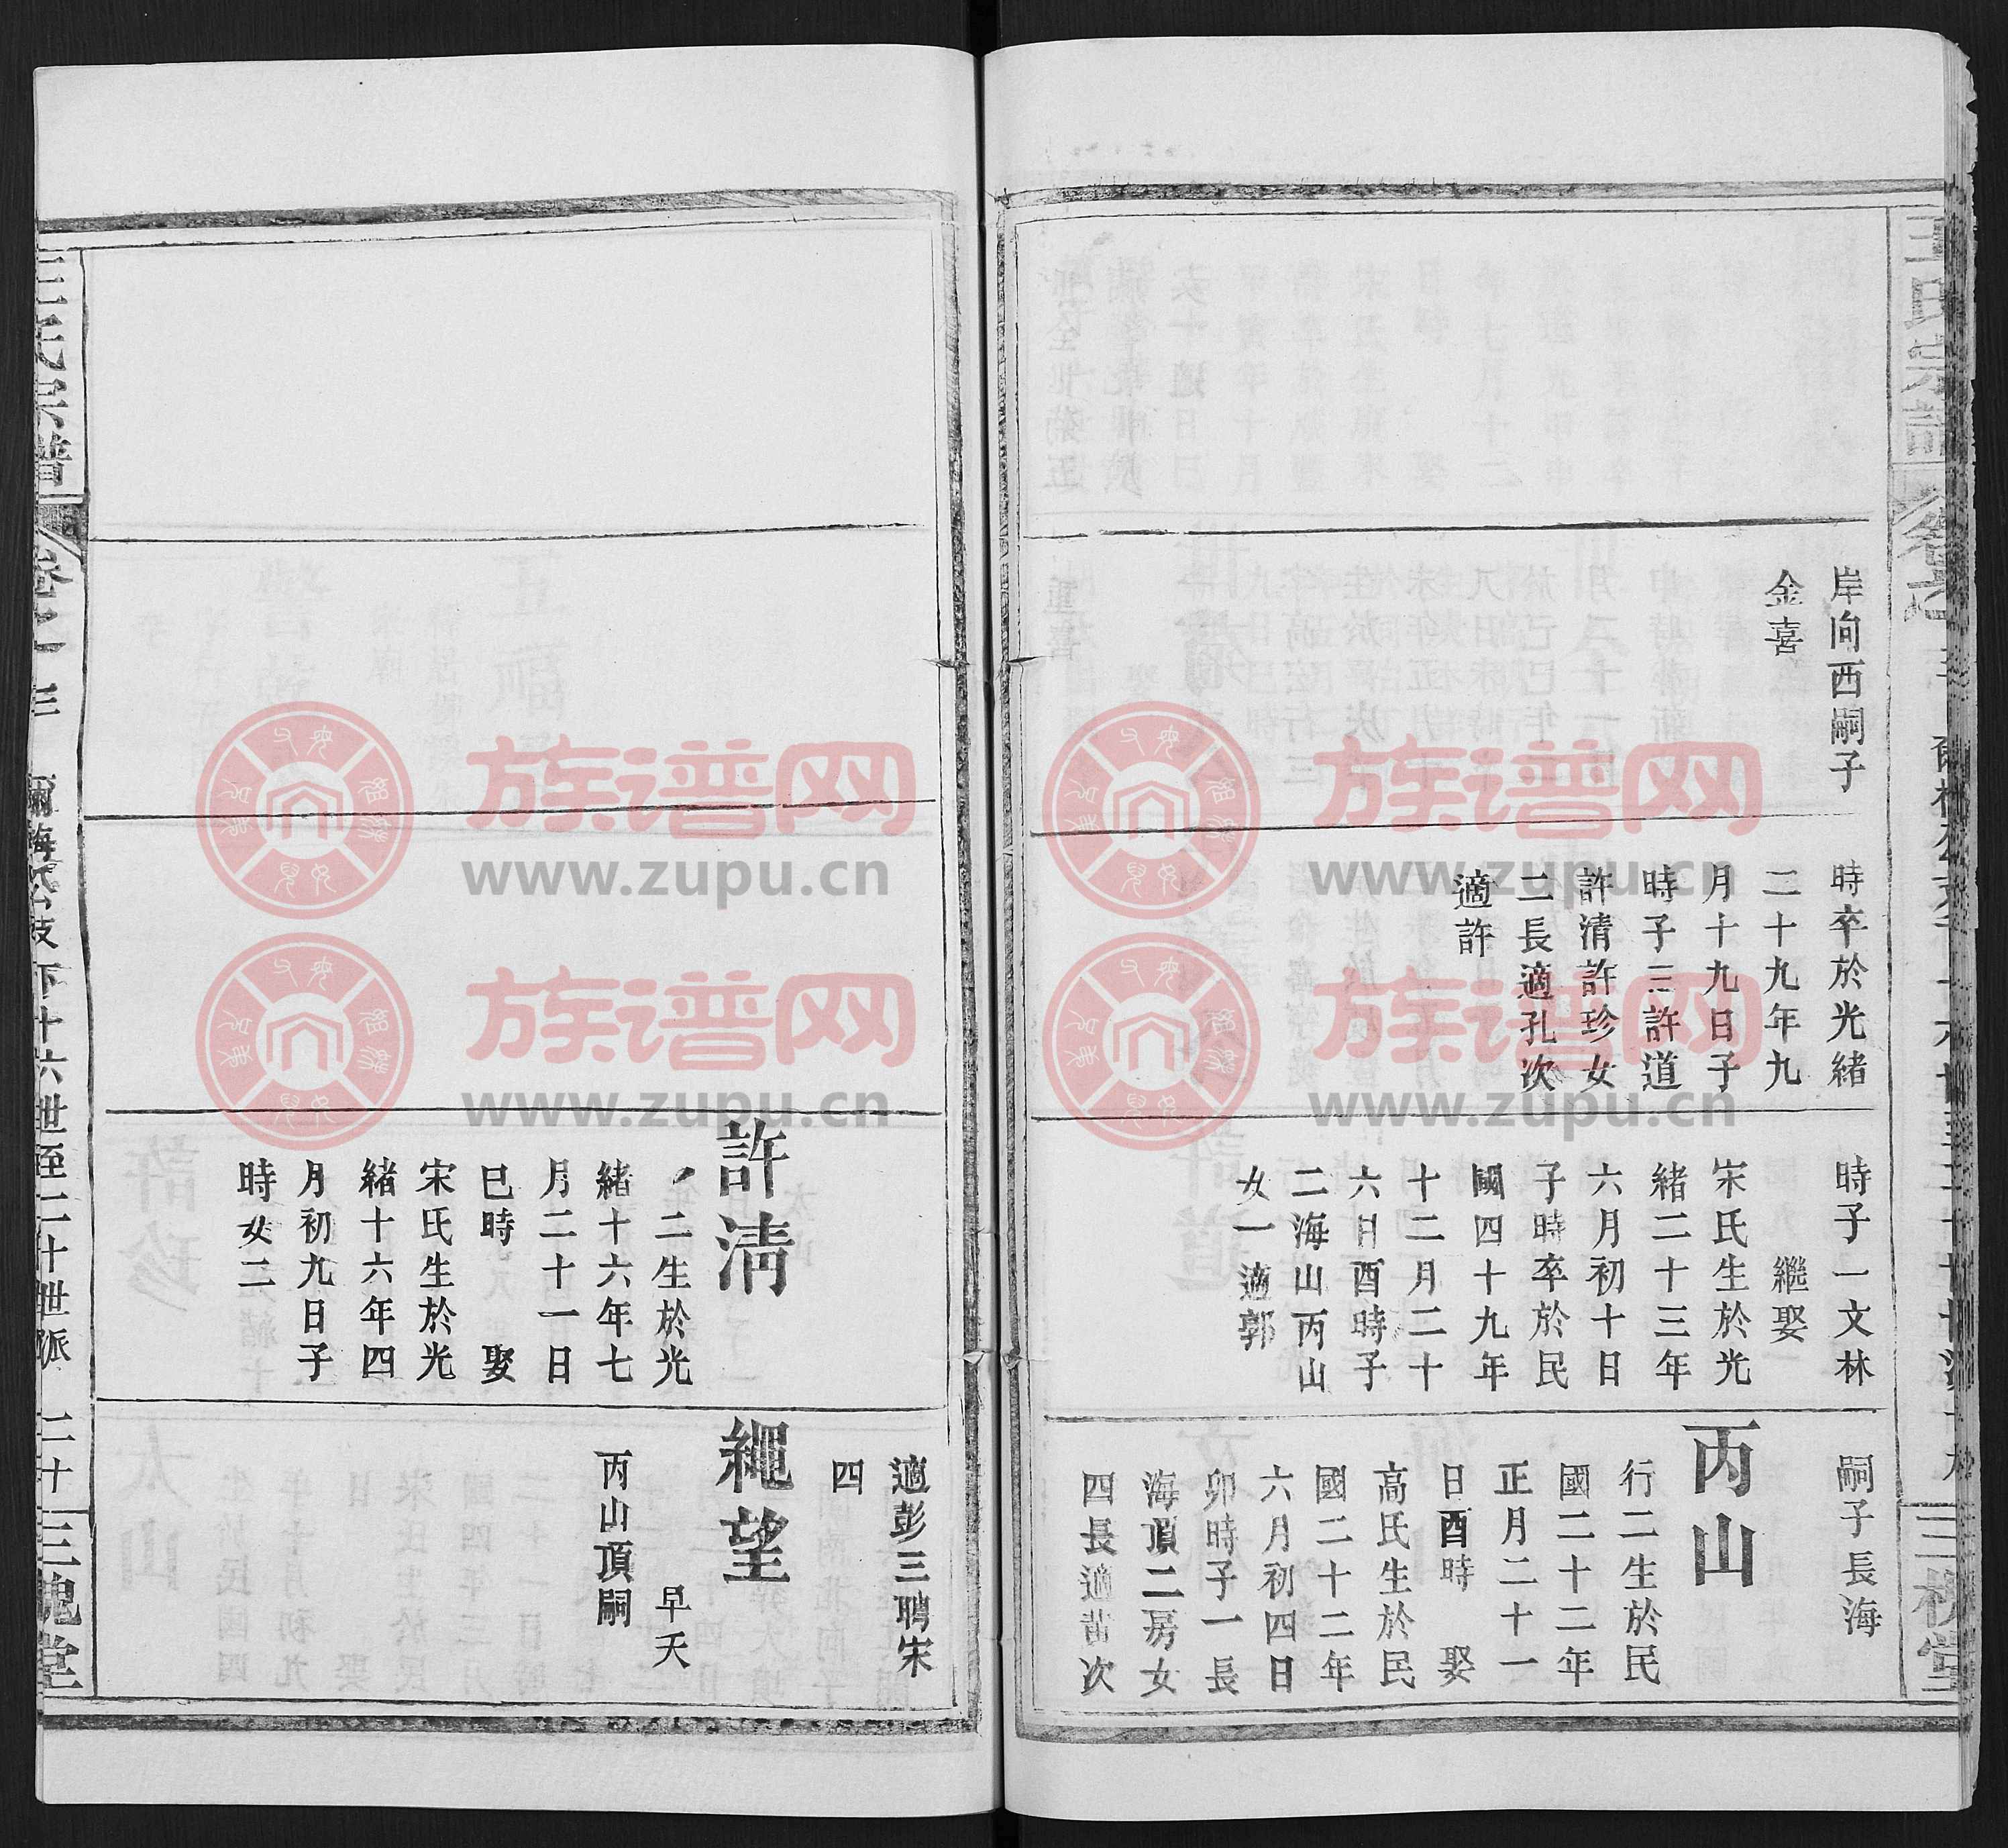 岸向西嗣子
金喜
時卒於光緒
二十九年九
月十九日子
時子三許道
許清許珍女
二長適孔次
適許
時子一文林
繼娶
宋氏生於光
緒二十三年
六月初十日
子時卒於民
國四十九年
十二月二十
六日酉時子
二海山丙山
女一適郭
嗣子長海
丙山
行二生於民
國二十二年
正月二十一
日酉時 娶
高氏生於民
國二十二年
六月初四日
卯時子一長
海頂二房女
四長適苗次
適彭三聘宋
四
許清
二生於光
緒十六年七
月二十一日
巳時 娶
宋氏生於光
緒十六年四
月初九日子
時女二
繩望
早夭
丙山頂嗣
王氏宗譜
爾梅公支下十六世至二十世派 二十
三槐堂
族谱网
www.zupu.cn
族谱网
www.zupu.cn
族谱网
www.zupu.cn
族谱网
www.zupu.cn